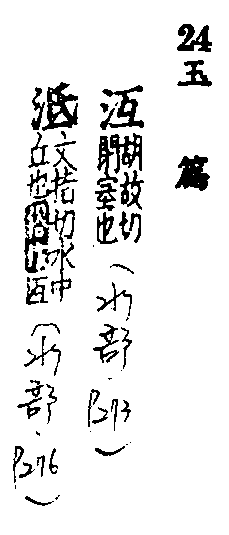 24玉篇
沍胡故切
閉塞也（水部·P273）
泜文指切水中
丘也（水部·P276）